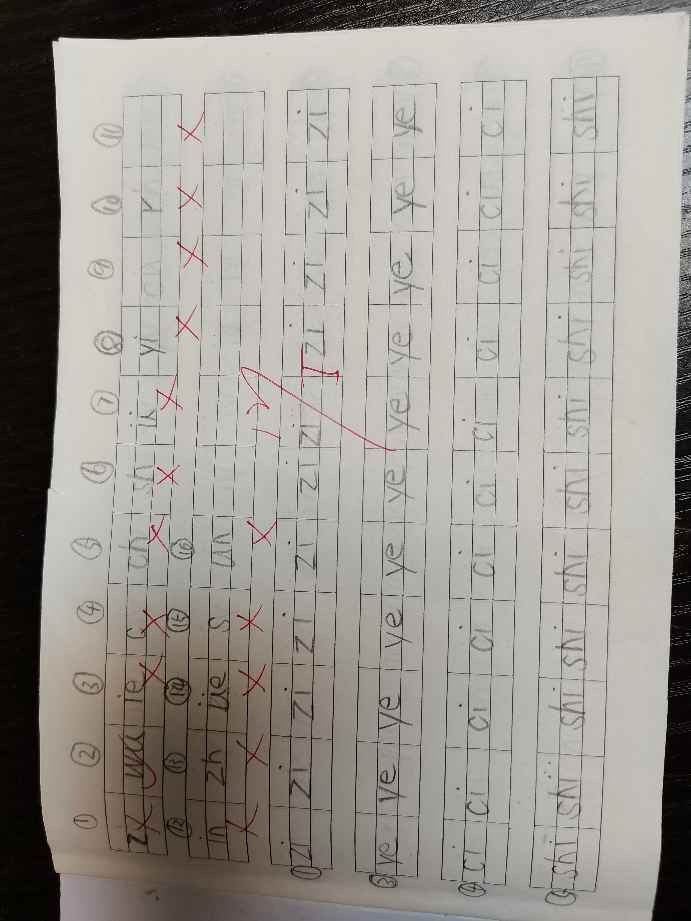 ① ② ③ ④ ⑤ ⑥ ⑦ ⑧ ⑨ ⑩ ⑪
z ie c sh ü yi r
⑫ ⑬ ⑭ ⑮ ⑯
in zh üe s un
① zi zi zi zi zi zi zi zi zi zi zi
③ ye ye ye ye ye ye ye ye ye ye ye
④ ci ci ci ci ci ci ci ci ci ci ci
shi shi shi shi shi shi shi shi shi shi shi